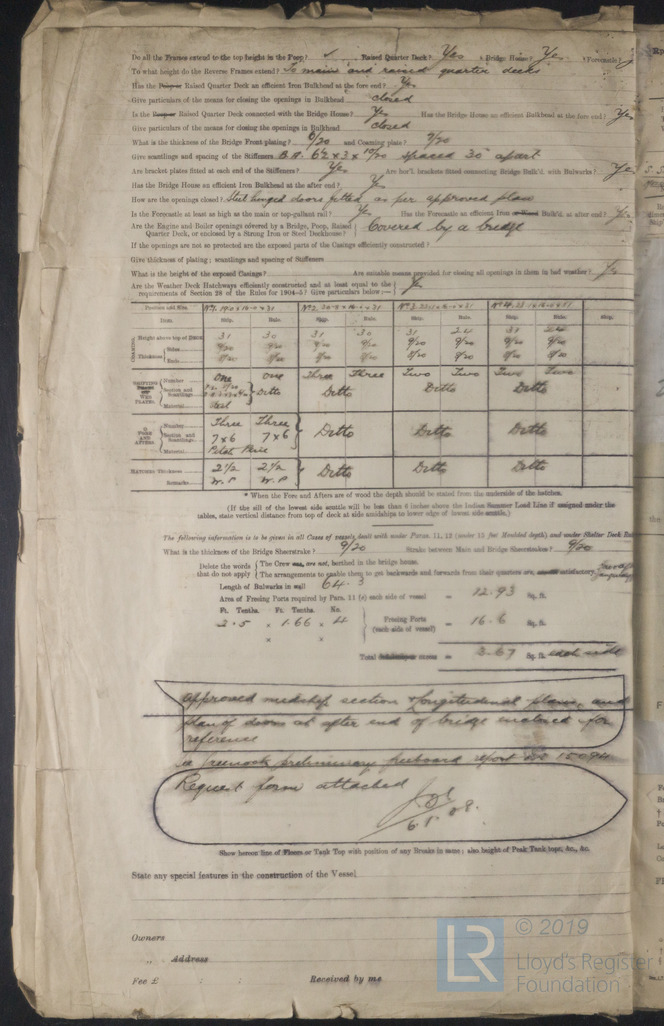 Do all the Frames extend to the top height in the Poop? ✓ Raised Quarter Deck? Yes Bridge House? Yes Forecastle?
To what height do the Reverse Frames extend? To main and raised quarter decks
Has the Poop or Raised Quarter Deck an efficient Iron Bulkhead at the fore end? Yes
Give particulars of the means for closing the openings in Bulkhead closed
Is the Poop or Raised Quarter Deck connected with the Bridge House? Yes Has the Bridge House an efficient Bulkhead at the fore end? Yes
Give particulars of the means for closing the openings in Bulkhead closed
What is the thickness of the Bridge Front plating? 9/20 and Coaming plate? 9/20
Give scantlings and spacing of the Stiffeners B.A. 6½ × 3 × 10/20 spaced 30" apart
Are bracket plates fitted at each end of the Stiffeners? Yes Are hor'l brackets fitted connecting Bridge Bulk'd. with Bulwarks? Yes
Has the Bridge House an efficient Iron Bulkhead at the after end? Yes
How are the openings closed? Steel hinged doors fitted as per approved plan
Is the Forecastle at least as high as the main or top-gallant rail? Yes Has the Forecastle an efficient Iron or Wood Bulk'd. at after end? Yes
Are the Engine and Boiler openings covered by a Bridge, Poop, Raised Quarter Deck, or enclosed by a Strong Iron or Steel Deckhouse? Covered by a bridge
If the openings are not so protected are the exposed parts of the Casings efficiently constructed?
Give thickness of plating; scantlings and spacing of Stiffeners
What is the height of the exposed Casings? Are suitable means provided for closing all openings in them in bad weather? Yes
Are the Weather Deck Hatchways efficiently constructed and at least equal to the
requirements of Section 28 of the Rules for 1904-5? Give particulars below:— Yes
Position and Size. No 1. No 2. No 3. No 4.
Item. Ship. Rule. Ship. Rule. Ship. Rule. Ship. Rule. Ship.
COAMING. Height above top of Deck 31 30 31 30 31 24 31 24
Thickness Sides 9/20 9/20 9/20 9/20 9/20 9/20 9/20 9/20
Ends 8/20 8/20 8/20 8/20 8/20 8/20 8/20
SHIFTING BEAMS OR WEB PLATES. Number One One Three Three Two Two Two Two
Section and Scantlings. Ditto Ditto Ditto Ditto
Material Steel
FORE AND AFTERS. Number Three Three
Section and Scantlings. 7×6 7×6 Ditto Ditto Ditto
Material Pitch Pine
HATCHES Thickness 2½ 2½ Ditto Ditto Ditto
Remarks W.P W.P
* When the Fore and Afters are of wood the depth should be stated from the underside of the hatches.
(If the sill of the lowest side scuttle will be less than 6 inches above the Indian Summer Load Line if assigned under the
tables, state vertical distance from top of deck at side amidships to lower edge of lowest side scuttle.)
The following information is to be given in all Cases of vessels dealt with under Paras. 11, 12 (under 15 feet Moulded depth) and under Shelter Deck
What is the thickness of the Bridge Sheerstrake? 9/20 Strake between Main and Bridge Sheerstrakes? 9/20
Delete the words that do not apply
The Crew are, are not, berthed in the bridge house.
The arrangements to enable them to get backwards and forwards from their quarters are, satisfactory,
Length of Bulwarks in well 64.3
Area of Freeing Ports required by Para. 11 (e) each side of vessel = 12.93 Sq. ft.
Ft. Tenths. Ft. Tenths. No.
2.5 × 1.66 × 4 Freeing Ports (each side of vessel) = 16.6 Sq. ft.
× ×
Total excess = 3.67 Sq. ft. each side
Approved midship section & Longitudinal plans, and
plan of doors at after end of bridge enclosed for
reference
See Greenock preliminary freeboard report No
Request form attached
6.5.08.
Show hereon line of Floors or Tank Top with position of any Breaks in same; also height of Peak Tank tops, &c., &c.
State any special features in the construction of the Vessel
Owners
„ Address
Fee £ : : Received by me
LR © 2019
Lloyd's Register
Foundation